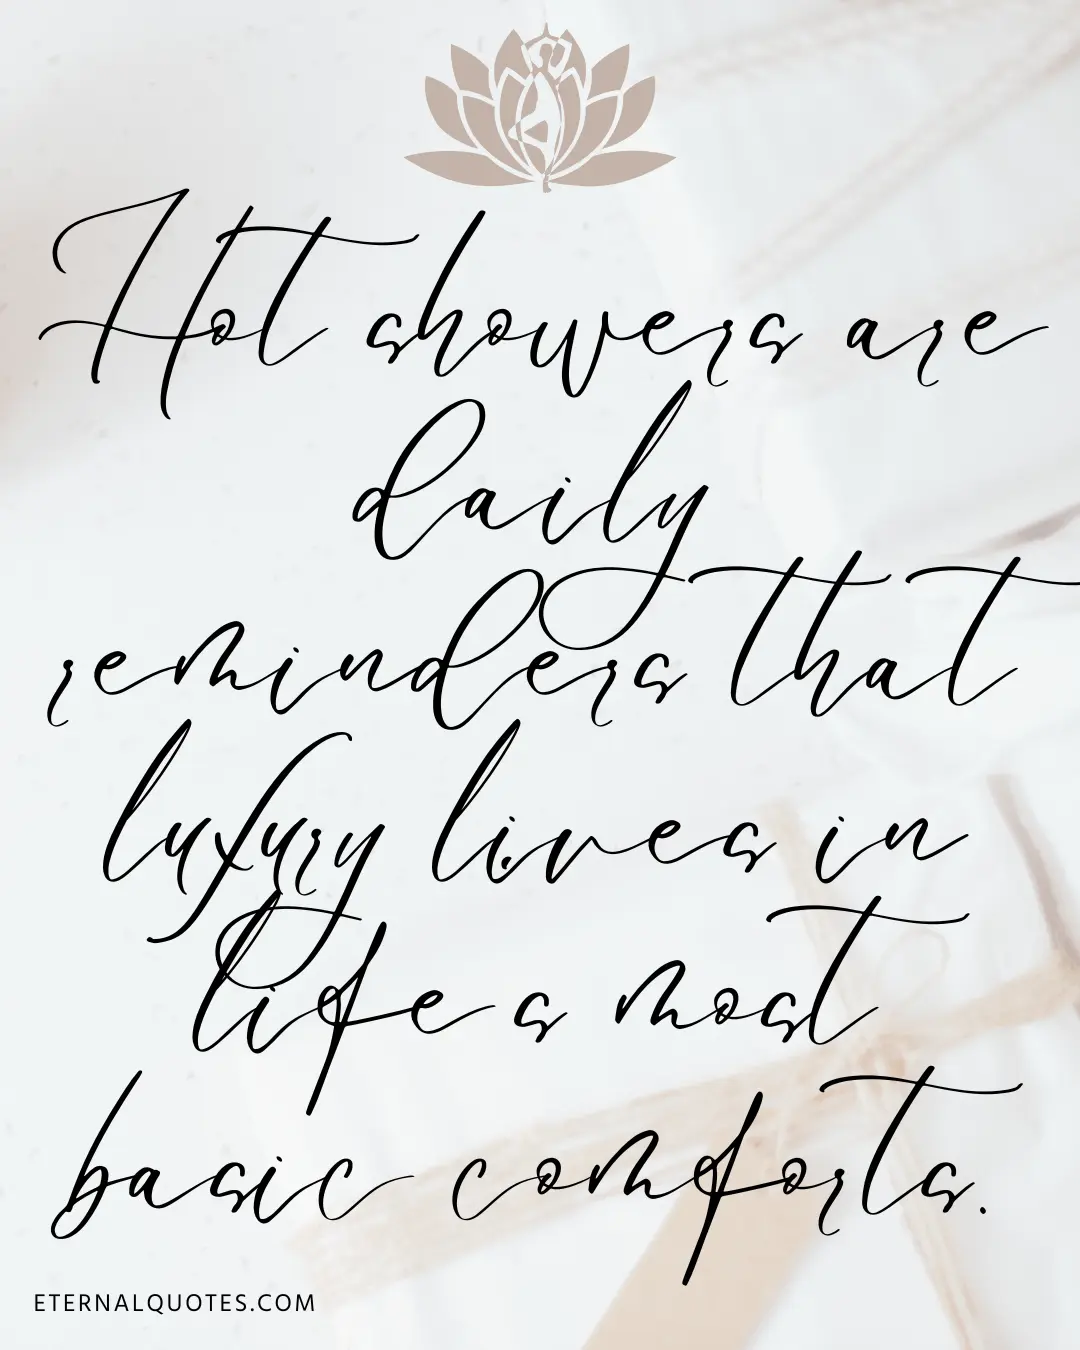 Hot showers are
daily
reminders that
luxury lives in
life s most
basic comforts.
ETERNALQUOTES.COM